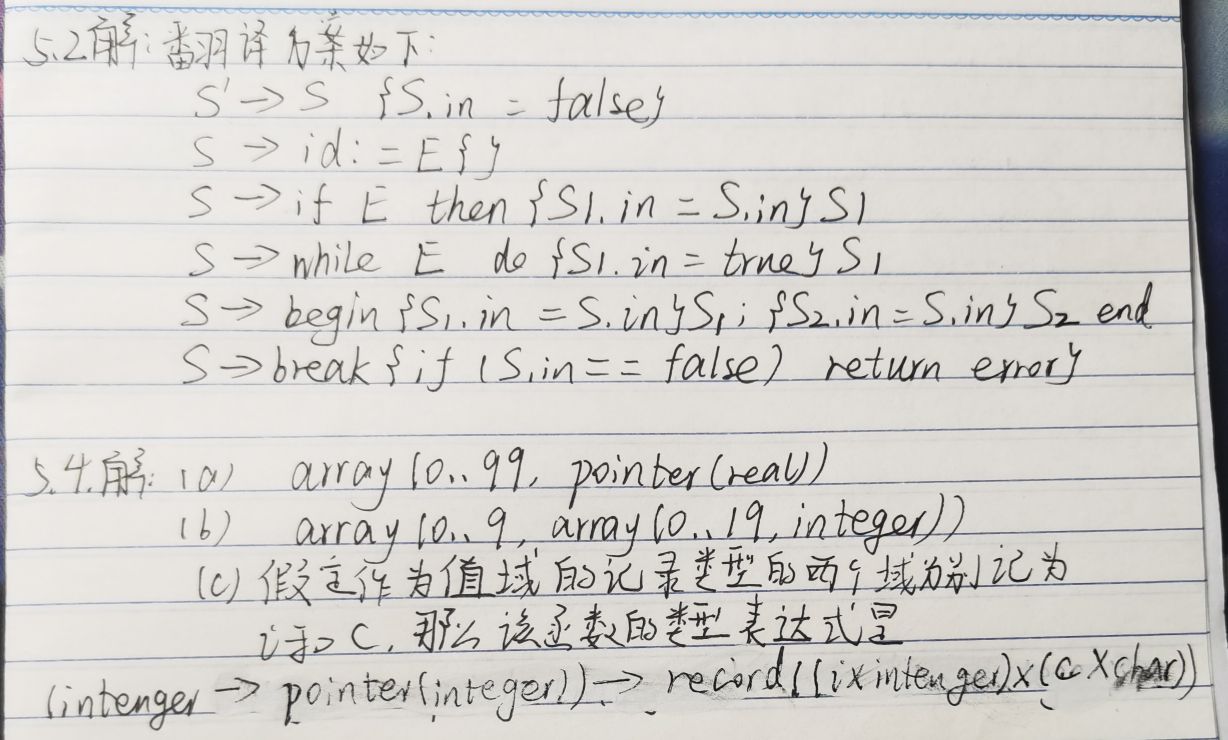 5.2解:翻译方案如下:
S' → S {S.in = false}
S → id := E {}
S → if E then {S1.in = S.in} S1
S → while E do {S1.in = true} S1
S → begin {S1.in = S.in} S1; {S2.in = S.in} S2 end
S → break {if (S.in == false) return error}
5.4.解: (a) array (0..99, pointer(real))
(b) array (0..9, array(0..19, integer))
(c) 假定作为值域的记录类型的两个域分别记为
i和c,那么该函数的类型表达式是
(intenger → pointer(integer)) → record((i×intenger)×(c×char))